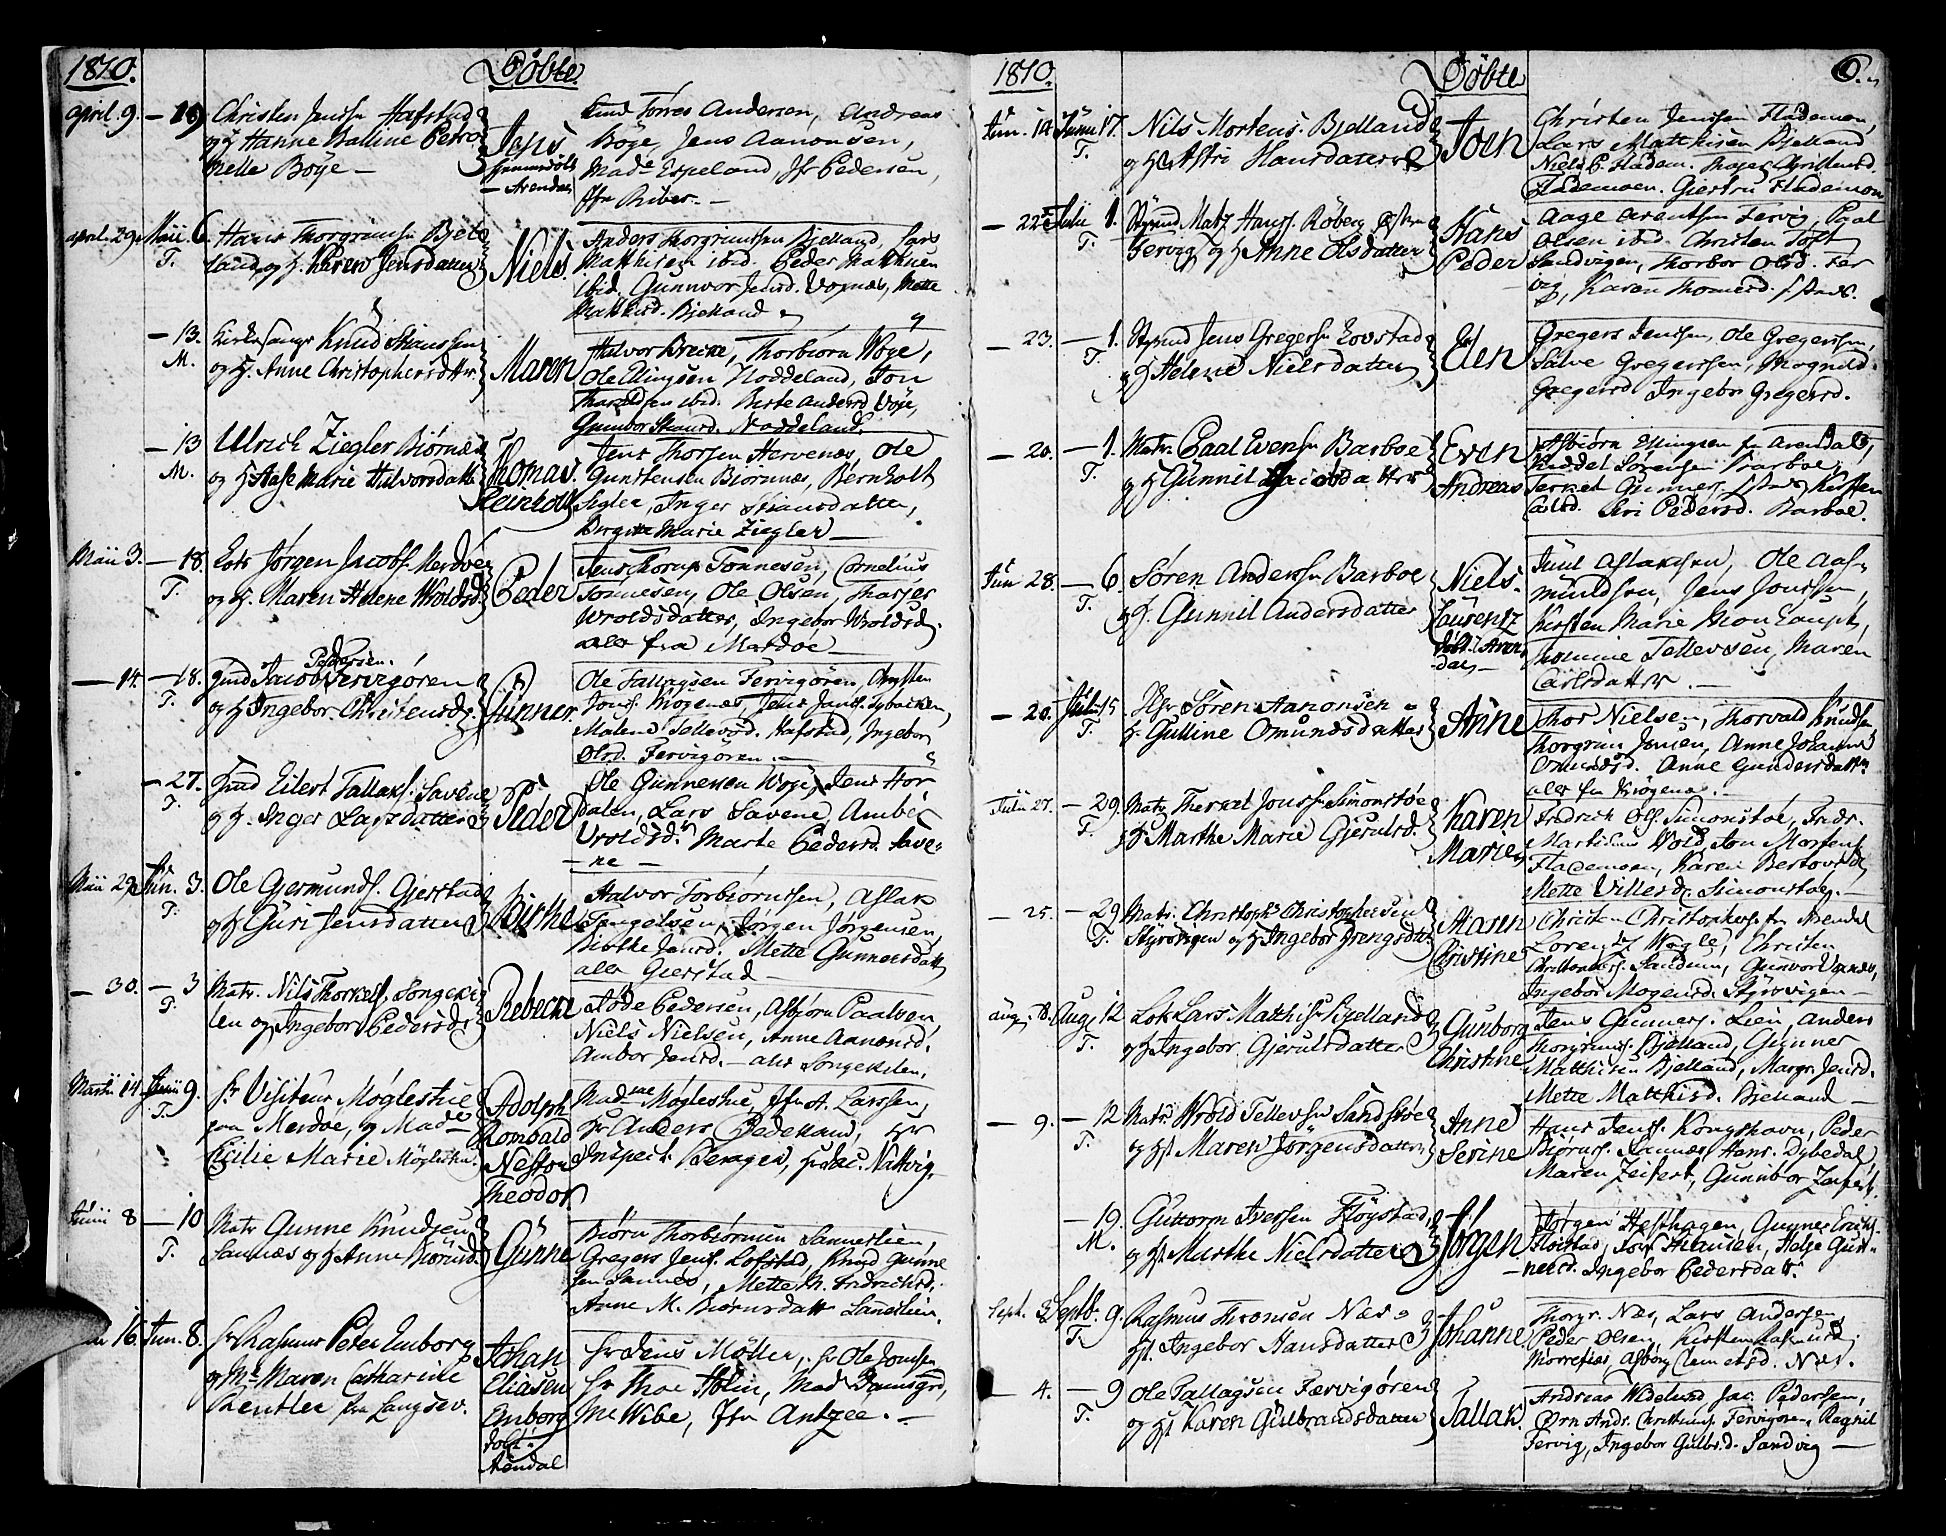 1810. Döbte
april. 9. — 19 Christen Jensen Hafstad
og H Hanne Malline Petro
nelle Böye —
Jens
Arendal
Torres Andersen, Andreas
Böye, Jens Aanonsen,
Mad. Espeland, Jfr Pedersen,
Jfr Riber. —
april. 29. Maii 6. T. Hans Thorgrimsen Bjel
land og H. Karen Jensdatter
Niels.
Anders Thorgrimsen Bjelland, Lars
Mathisen ibid. Peder Mathisen
ibid. Gunnvor Jensd. Mette
Mathisd. Bjelland
— 13. M. Kirkesanger Knud Hanssen
og H. Anne Christophersdtr.
Maren
Halvor Brekke, Thorbiörn Woge,
Ole Ellingsen Noddeland, Jon
Haraldsen ibid. Berte Andersd Woje,
Gunbor Noddeland.
— 13 M. Ulrich Ziegler Biörnæs
og H Aase Marie Halvorsdatter
Thomas
Reinholt
Jens Thorsen Hervenæs, Ole
Guntensen Biörnnæs, Bernholt
Sigler, Inger
Birgitte Marie Ziegler —
Maii 3. — 18. T. Lots Jörgen Jacobs. Merdöe
og H. Maren Helene Wroldsd.
Peder
Jens Thorup Tönnesen, Cornelius
Tonnesen, Ole Olsen, Tharjer
Wroldsdatter, Ingebor Wroldsd.
alle fra Merdöe —
— 14. — 18. T. Pedersen.
Gmd Jacob Fervigören
og H Ingebor Christensd.
Gunner.
Ole Tallagsen Fervigören,
Jens
Malene Tellevsd. Hafstad, Ingebor
Olsd. Fervigören. —
— 27. T. Gmd Eilert Tallaks. Savene
og H. Inger Larsdatter
Peder
Ole Gunnersen Woje, Jens Hor
dalen, Lars Savene, Amber
Wroldsd. Marte Pedersd. Save-
— ne —
Maii 29. Jun. 3. T. Ole Germunds. Gjerstad
og H Guri Jensdatter
Birthe
Halvor Torbiörnsen, Aslak
Jörgen Jörgensen,
Birthe Jensd. Mette Gunnersdatt
alle Gjerstad —
— 30. — 3 T. Matr. Nils Thorkels. Songeki
len og H Ingebor Pedersd.
Rebecca
Töde Pedersen, Asbjörn Paalsen,
Niels Nielsen, Anne Aanonsd.
Ambor Jensd. — alle Songekilen.
Martii 14. Junii 9. T. Hr Visiteur Möglestue
paa Merdöe, og Made
Cicilie Marie Möglestue.
Adolph
Rombald
Nestor
Theodor
Madme Möglestue, Jfr A. Larssen,
Hr Anders Pedelland, Hr
Inspect. Berager, Hr Jac. Nattvig.
Junii 8 — 10 T. Matr Gunne Knudsen
Sannæs og H Anne Biörnsd.
Gunne
Biörn Thorbiörnsen Sannerslien,
Gregers Jens. Lofstad, Knud Gunne
sen Sannes, Mette M. Fredrichsd.
Anne M. Biörnsdatt Saneslien.
16. Jun. 8. Hr Rasmus Peter Emborg
og Me Maren Catharine
Kentler fra Langsev.
Johan
Eliasen
Emborg
döbt i
Arendal
Hr Jens Möller, Hr Ole Jonssen
Hr Thor Holm, Mad Damsgrd,
Me Wibe, Jfr Antzee. —
1810. Döbte 6.
Jun. 14 Junii 17. T. Nils Mortens. Bjelland
og H Astri Hansdatter
Joen
Christen Jenssen Flademoen,
Lars Matthisen Bjelland
Niels P. Fladem. Christensd.
Flademoen. Giertru Flademoen
— 22 Julii 1. T. Styrmd Matz Hans. Röberg
Fervig og H Anne Olsdatter
Hans
Peder
Aage Arentsen Fervig, Paal
Olsen ibid. Christen Toft
Sandvigen, Thorbor Olsd. Fer
vig, Karen Thomesd.
— 23. — 1. T. Styrmd Jens Gregersen Lovstad
og H Helene Nielsdatter
Elen
Gregers Jenssen, Ole Gregerssen,
Salve Gregerssen, Mognild
Gregersd Ingebor Gregersd.
— 20. — 1. T. Matr. Paal Evensen Barboe
og H Gunnil Jacobsdatter
Even
Andreas
Asbiörn Ellingsen fra Arendal,
Kiddel Sörensen Barboe,
Terkel Gunners. Kirsten
Carlsd. Siri Pedersd. Barboe.
Jun 28. — 6. T. Sören Andersen Barboe
og H. Gunnil Andersdatter
Niels.
Laurentz
döbt i Aren
dal —
Juul Aslaksen, Ole Aas-
mundsen, Jens Jonssen,
Kirsten Marie Mon
Tomine Tellevsen, Maren
Carlsdatter. —
— 20. Julii 15 T. Hr Sören Aanonsen
H. Gulline Omundsdatter
Anne
Thor Nielsen, Thorvald Knudsen
Thorgrim Jensen, Anne Johanne
Omundsd. Anne Gundersdatter
alle fra Krögenes.
Julii 27. — 29. T. Matr Therkel Jonssen Simonstöe
og H Marthe Marie Gjerulsd.
Karen
Marie
Fredrich Ols. Simonstöe, Fredr.
Martinius Wold, Jon Mortens.
Flademoen, Karen
Mette Villesd. Simonstöe. —
— 25. — 29 T. Matr. Christoph. Christophersen
Styrsvigen og H Ingebor
Maren
Cristine
Christen Christophers. fra Arendal
Lorentz Wogle, Christen
Christophers. Sandum, Gunvor
Ingebor Mogensd. Styrsvigen —
aug. 8. Aug 12 T. Lok Lars Matthisen Bjelland
og H Ingebor Gjerulsdatter
Gunborg
Christine
Jens Gunners. Lien, Anders
Thorgrims. Bjelland, Gunner
Matthisen Bjelland, Margr. Jensd.
Mette Matthisd. Bjelland —
— 9. — 12 T. Matr Wrold Tellevsen Sandstöe
og H. Maren Jörgensdatter
Anne
Serine
Hans Jens. Kongshavn, Peder
Biörns. Sannæs Henr. Dybedal
Maren Zeifert, Gunnbor Zeifert.
— 19. M. Guttorm Iversen Flöystad,
og H. Marthe Nielsdatter
Jörgen
Jörgen Hesthagen, Gunner Eriks.
Flöistad, Hansen, Helje Gun-
nersd. Ingebor Pedersdatt.
Sept. 3. Septb. 9. T. Rasmus Thronsen Næs
H. Ingebor Hansdatter
Johanne
Thorgr. Næs, Lars Andersen
Peder Olsen, Kirsten Rasmusd.
Morrefiær, Asborg Clemetsd. Næs.
— 4. — 9 T. Ole Tallagsen Færvigören
og H. Karen Gulbrandsdatter
Tallak.
Andreas Jac. Pedersen,
Örn Andr. Christens. Fervigören, Ragnil
Fervig, Ingebor Gulbrd. Sandvig —